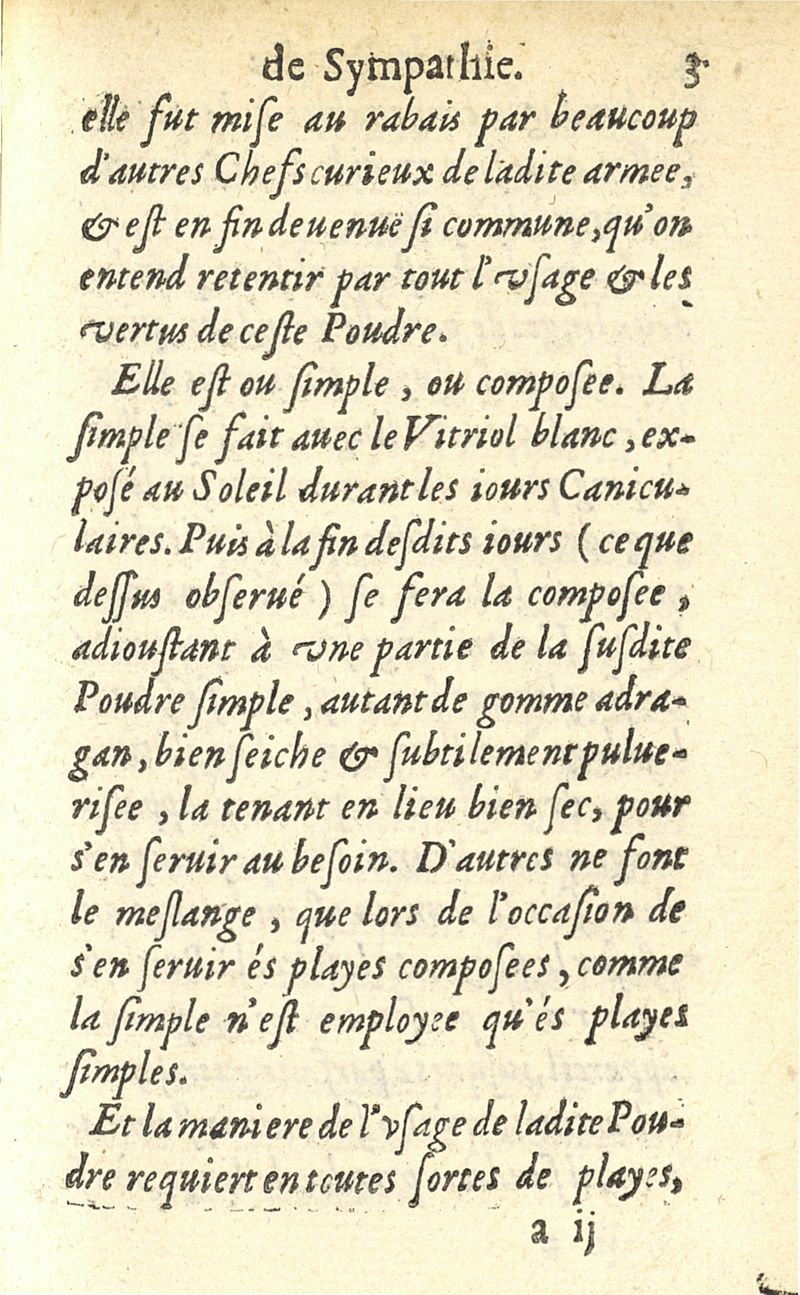 de Sympathie. 3
elle fut miſe au rabais par beaucoup
d'autres Chefs curieux de ladite armee,
& eſt en fin deuenuë ſi commune, qu'on
entend retentir par tout l'vſage & les
vertus de ceſte Poudre.
Elle eſt ou ſimple, ou compoſee. La
ſimple ſe fait auec le Vitriol blanc, ex-
poſé au Soleil durant les iours Canicu-
laires. Puis à la fin deſdits iours (ce que
deſſus obſerué) ſe fera la compoſee,
adiouſtant à vne partie de la ſuſdite
Poudre ſimple, autant de gomme adra-
gan, bien ſeiche & ſubtilement pulue-
riſee, la tenant en lieu bien ſec, pour
s'en ſeruir au beſoin. D'autres ne font
le meſlange, que lors de l'occaſion de
s'en ſeruir és playes compoſees, comme
la ſimple n'eſt employee qu'és playes
ſimples.
Et la maniere de l'vſage de ladite Pou-
dre requiert en toutes ſortes de playes,
a ij